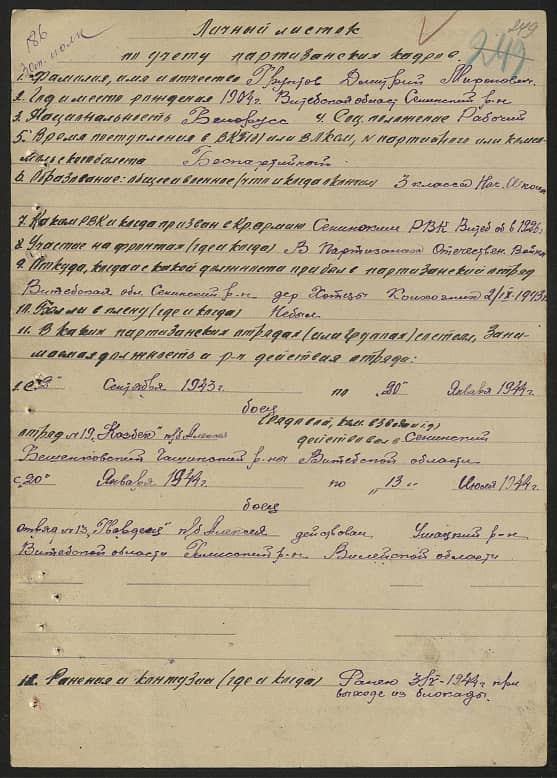 186
249
247
Личный листок
по учету партизанских кадров.
1. Фамилия, имя и отчество Грунтов Дмитрий Миронович.
2. Год и место рождения 1904г. Витебская област Сенинский р-н
3. Национальность Белорусс 4. Соц. положение Рабочий
5. Время поступления в ВКП(б) или ВЛКСМ, № партийного или комсо-
мольского билета Беспартийной.
6. Образование: общее и военное (что и когда окончил) 3 класса Нач. Школы
7. Каким РВК и когда призван в Кр. армию Сенинским РВК Витеб об в 1926г.
8. Участие на фронтах (где и когда) В Партизанах Отечествен. Войны
9. Откуда, когда и с какой должности прибыл в партизанский отряд
Витебская обл. Сенинский р-н. дер Хотцы Колхозник 2/IX-1943г
10. Был ли в плену (где и когда) Небыл.
11. В каких партизанских отрядах (или группах) состоял, Зани-
маемая должность и р-н действия отряда:
1. с "2" Сентября 1943г. по "20" Января 1944г.
боец
(рядовой, ком. взвода и т.д)
отряд №19 "Казбек" п/б Алексея действовал в Сенинский
Бешенковский Чашникский р-ны Витебской области
с "20" Января 1944г. по "13" Июля 1944г.
боец
отряд №13 "Гвардеец" п/б Алексея действовал Ушацкий р-н
Витебской области р-н. Вилейской области
12. Ранения и контузии (где и когда) Ранен 3/V-1944г при
выходе из блокады.